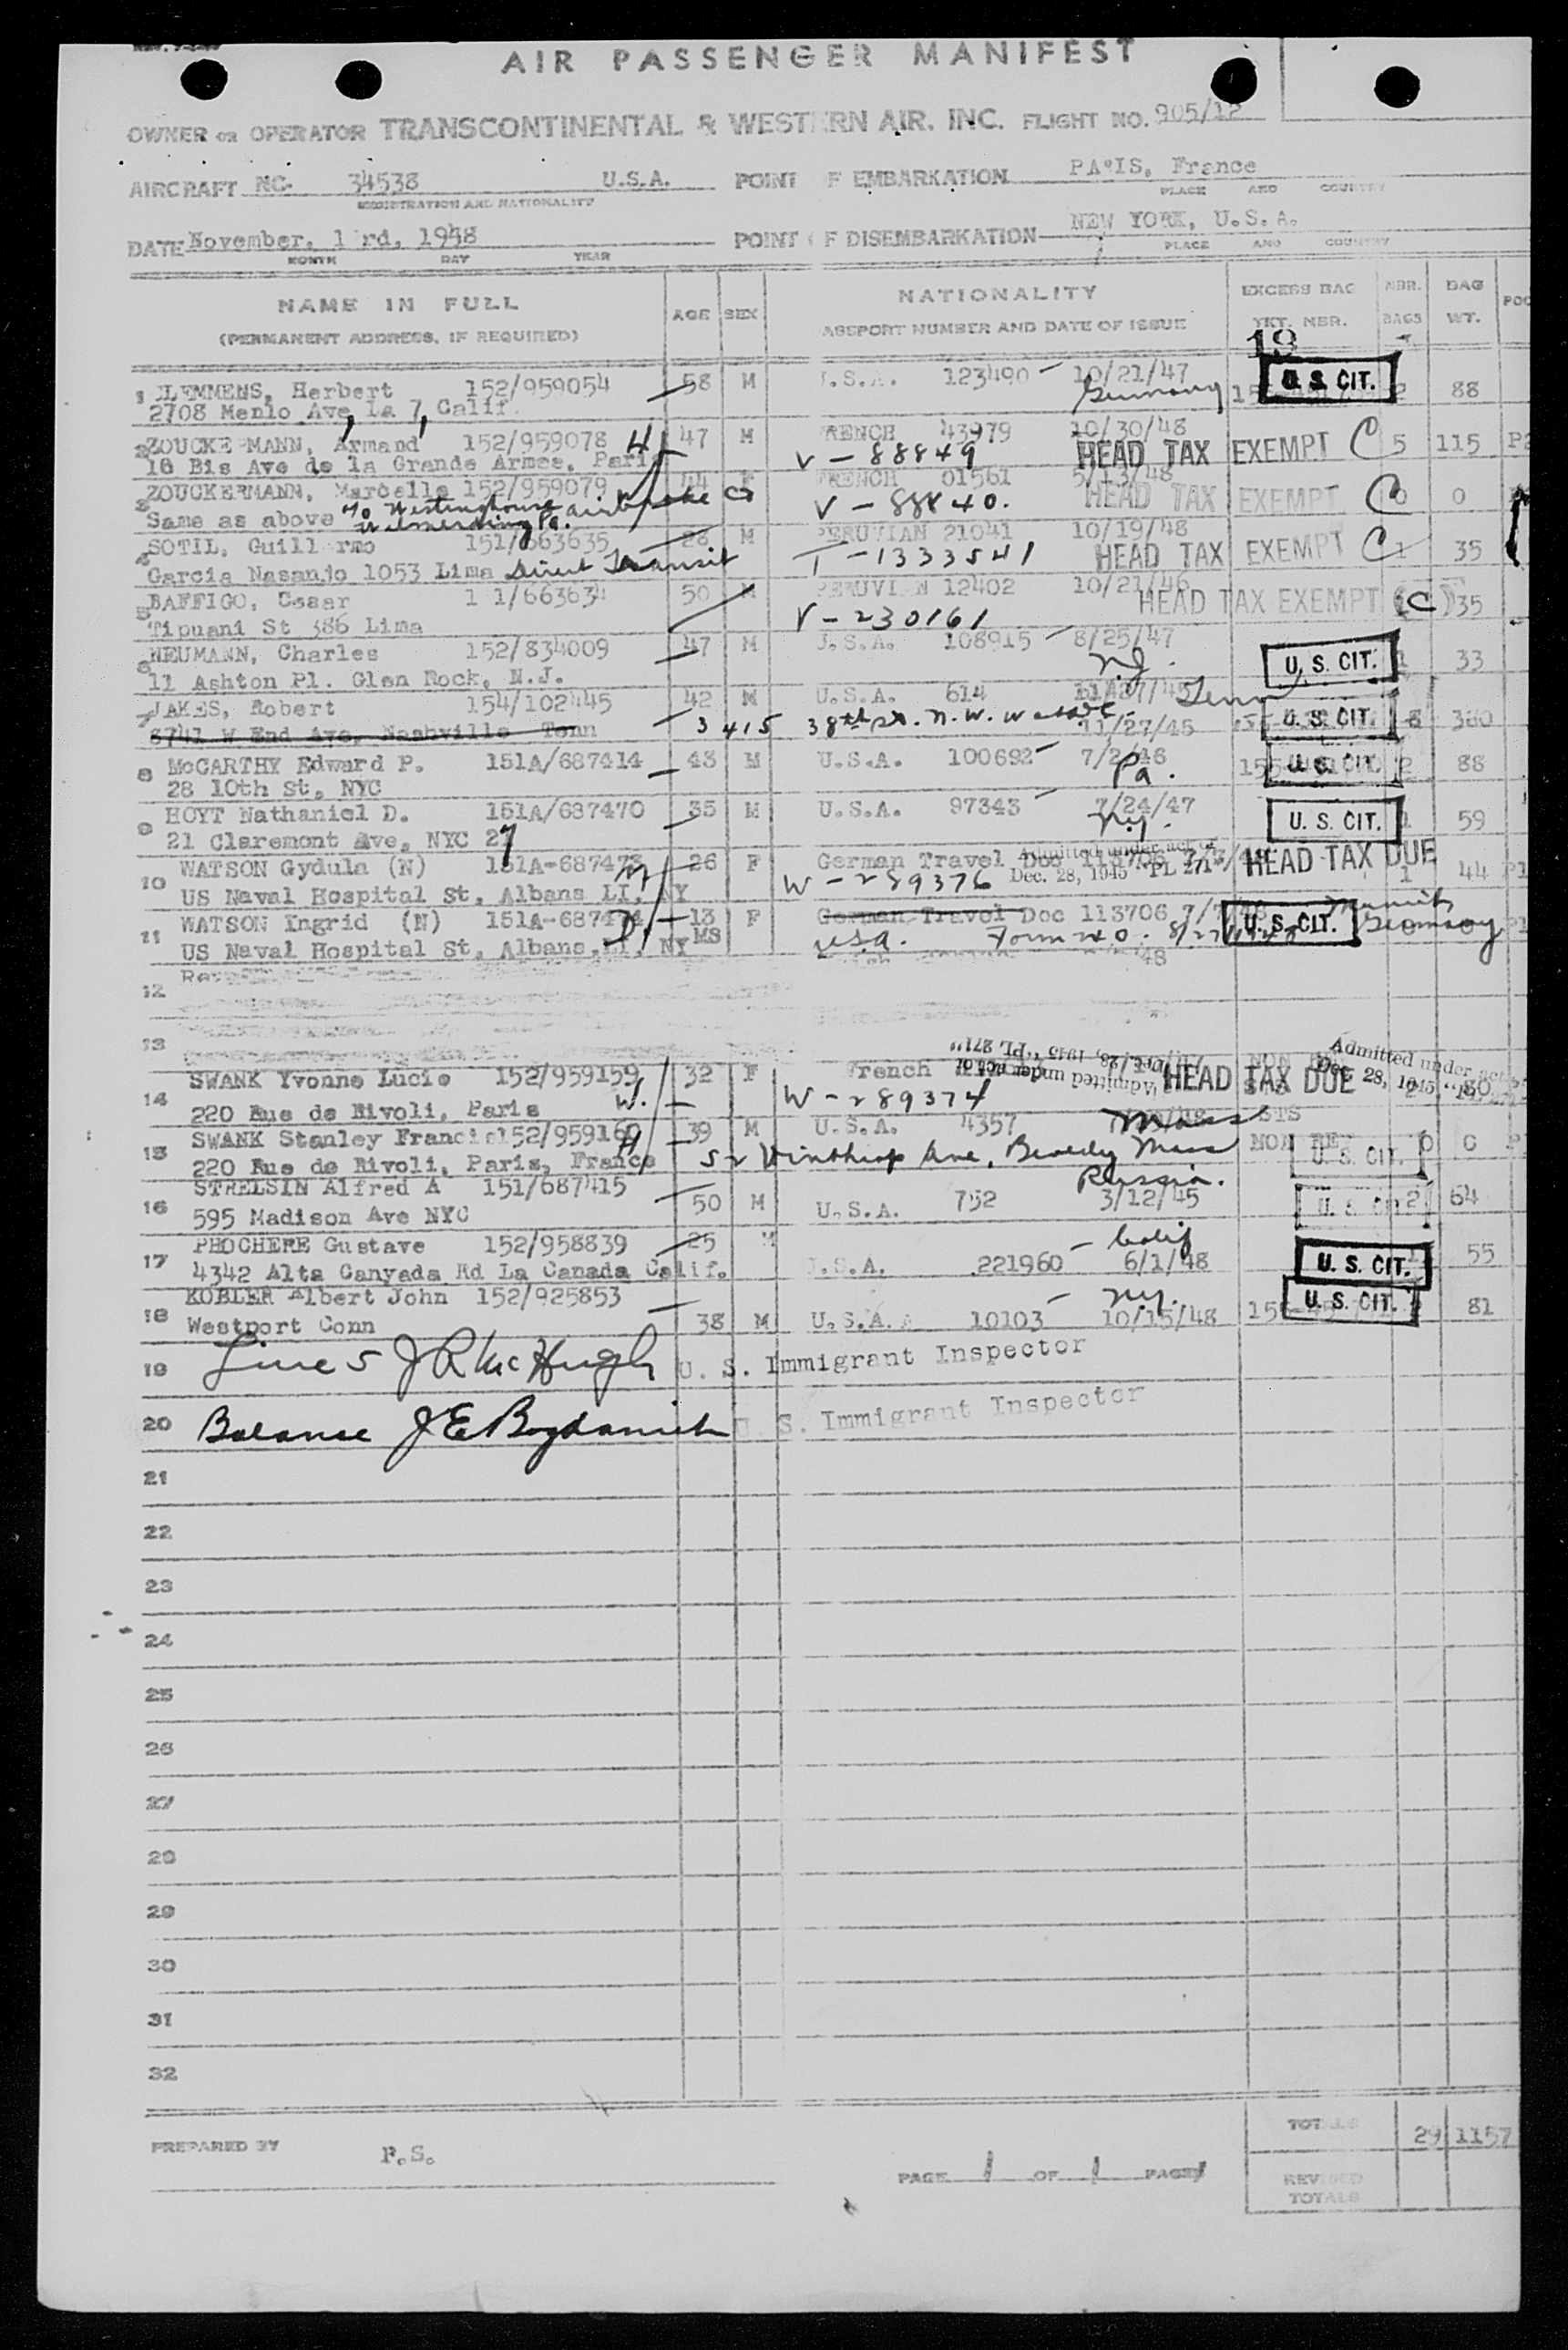 AIR PASSENGER MANIFEST
OWNER OR OPERATOR TRANSCONTINENTAL & WESTERN AIR, INC. FLIGHT NO. 905/12
AIRCRAFT NC- 34538 U.S.A. POINT OF EMBARKATION PARIS, France
REGISTRATION AND NATIONALITY PLACE AND COUNTRY
DATE November, 1 rd, 1948 POINT OF DISEMBARKATION NEW YORK, U.S.A.
MONTH DAY YEAR PLACE AND COUNTRY
NAME IN FULL AGE SEX NATIONALITY EXCESS BAG NBR. BAG
(PERMANENT ADDRESS, IF REQUIRED) ASSPORT NUMBER AND DATE OF ISSUE TKT. NBR. BAGS WT.
19
1 LEMMENS, Herbert 152/959054 58 M U.S.A. 123490 - 10/21/47 U. S. CIT. 2 88
2708 Menlo Ave, La 7, Calif. Germany
2 ZOUCKERMANN, Armand 152/959078 H 47 M FRENCH 43979 10/30/48 5 115
18 Bis Ave de la Grande Armee, Paris V - 88849 HEAD TAX EXEMPT C
3 ZOUCKERMANN, Marcelle 152/959079 44 F FRENCH 01561 5/13/48 0 0
Same as above c/o Westinghouse airbrake Co V - 88840. HEAD TAX EXEMPT C
Wilmerding Pa.
4 SOTIL, Guill rmo 151/663635 28 M PERUVIAN 21041 10/19/48 1 35
Garcia Nasanjo 1053 Lima Direct Transit T - 1333541 HEAD TAX EXEMPT C
5 BAFFIGO, Cesar 1 1/663634 50 M PERUVI N 12402 10/21/46 35
Tipuani St 386 Lima V - 230161 HEAD TAX EXEMPT C
6 NEUMANN, Charles 152/834009 47 M U.S.A. 108915 - 8/25/47 U. S. CIT. 1 33
11 Ashton Pl. Glen Rock, N.J. N.J.
7 JAKES, Robert 154/102445 42 M U.S.A. 614 Tenn U. S. CIT. 8
8741 W End Ave, Nashville Tenn 3415 38th pl. N.W. Wash DC 11/27/45
8 McCARTHY Edward P. 151A/687414 43 M U.S.A. 100692 - U. S. CIT. 2 88
28 10th St, NYC Pa.
9 HOYT Nathaniel D. 151A/687470 35 M U.S.A. 97343 - 7/24/47 U. S. CIT. 1 59
21 Claremont Ave, NYC 27 N.Y.
10 WATSON Gydula (N) 151A-687473 26 F German Travel Doc 113706 Admitted under act of HEAD TAX DUE 1 44
US Naval Hospital St, Albans LI, NY W - 289376 Dec. 28, 1945 "PL 271"
11 WATSON Ingrid (N) 151A-687474 D 13 F German Travel Doc 113706 U. S. CIT. Munich
US Naval Hospital St, Albans, LI, NY MS U.S.A. Form 240. Germany
12
13
SWANK Yvonne Lucie 152/959159 32 F French Admitted under act of Dec. 28, 1945 "PL 271" HEAD TAX DUE Admitted under act Dec. 28, 1945
14 220 Rue de Rivoli, Paris W. W - 289374
15 SWANK Stanley Francis 152/959160 H 39 M U.S.A. 4357 Mass STS
220 Rue de Rivoli, Paris, France 52 Winthrop Ave, Beverly Mass NON REV U. S. CIT. 0 0
Russia.
16 STRELSIN Alfred A 151/687415 50 M U.S.A. 752 3/12/45 U. S. CIT 2 64
595 Madison Ave NYC
17 PHOCHERE Gustave 152/958839 25 M U.S.A. 221960 - 6/1/48 Calif U. S. CIT. 55
4342 Alta Canyada Rd La Canada Calif.
18 KOBLER Albert John 152/925853 38 M U.S.A. 10103 - 10/15/48 N.Y. U. S. CIT. 81
Westport Conn
19 Line 5 J R McHugh U. S. Immigrant Inspector
20 Balance J E Bogdanich U. S. Immigrant Inspector
21
22
23
24
25
26
27
28
29
30
31
32
PREPARED BY P.S. PAGE 1 OF 1 PAGES
TOTALS 29 1157
REVISED TOTALS